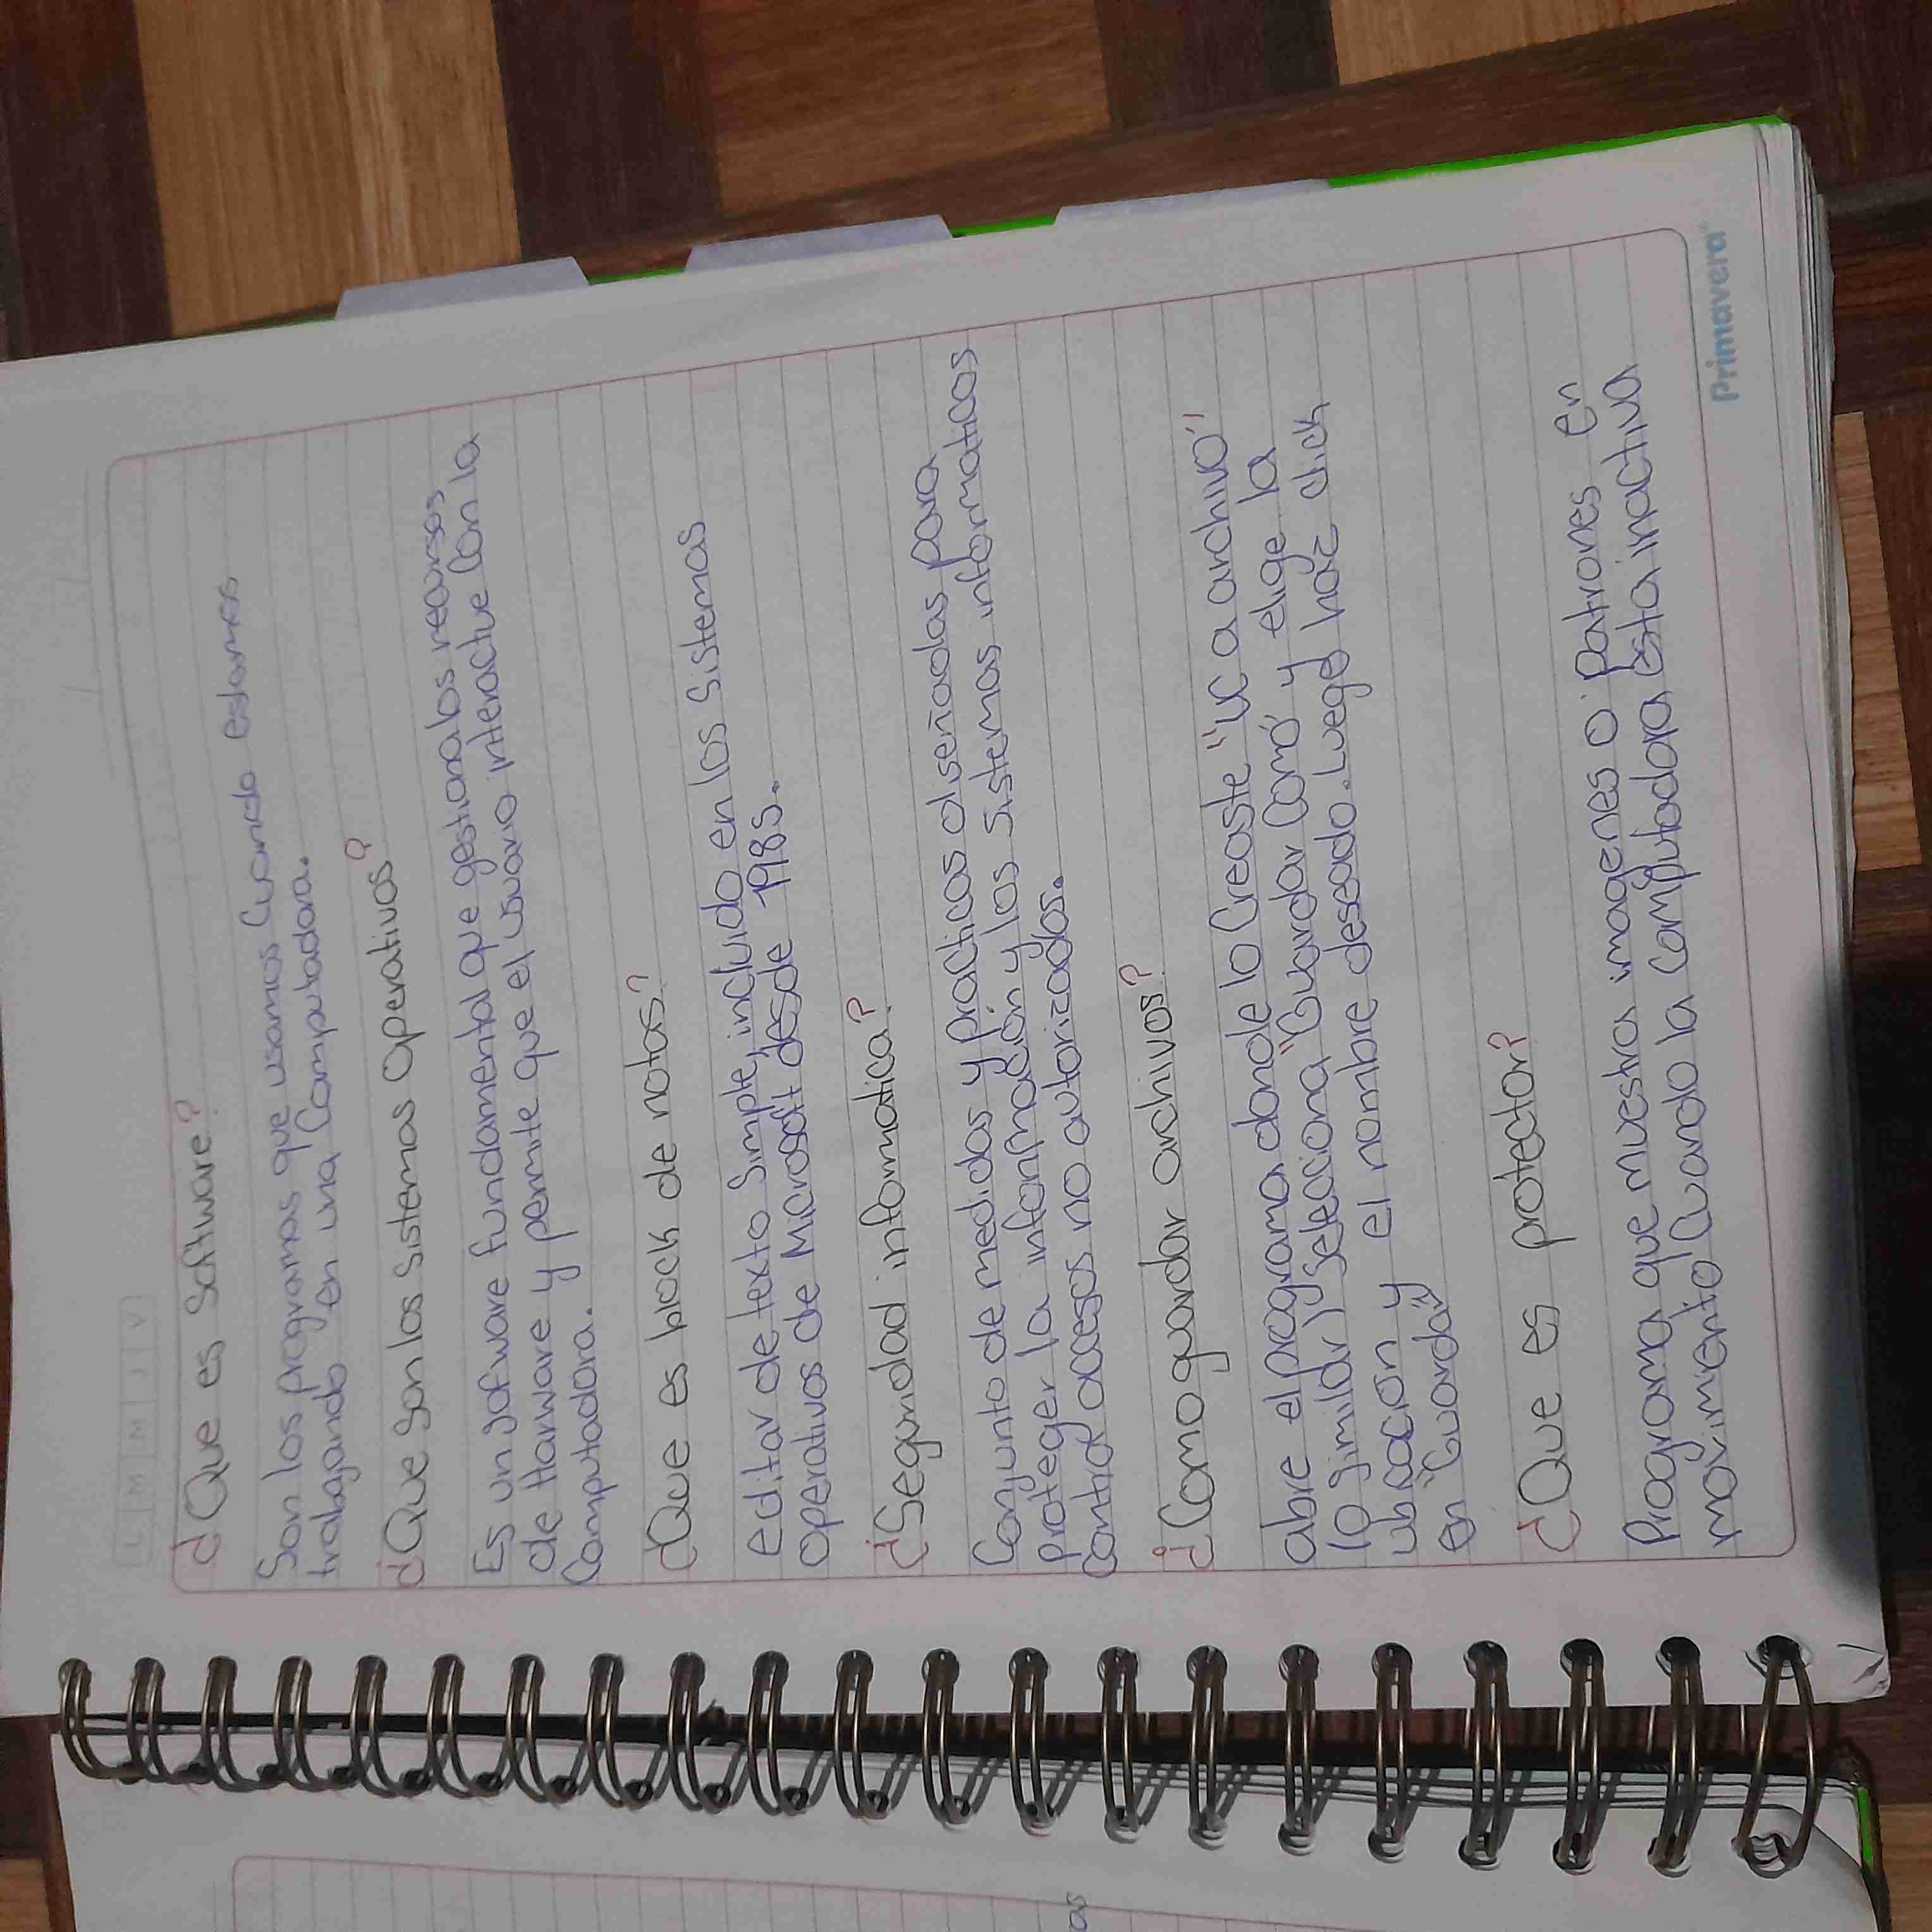 L M M J V
¿Que es Software?
Son los programas que usamos Cuando estamos
trabajando en una Computadora.
¿Que son los Sistemas Operativos?
Es un sofware fundamental que gestiona los recursos
de Harware y permite que el usuario interactue Con la
Computadora.
¿Que es block de notas?
editar de texto simple, incluido en los Sistemas
Operativos de Microsoft desde 1985.
¿Seguridad informatica?
Conjunto de medidas y practicas diseñadas para
proteger la información y los Sistemas informaticos
contra accesos no autorizados.
¿Como guardar archivos?
abre el programa donde lo Creaste "ve a archivo"
(o similar) y seleciona "Guardar Como" y elige la
ubicación y el nombre deseado. Luego haz click
en "Guardar"
¿Que es protector?
Programa que muestra imagenes o patrones en
movimiento Cuando la Computadora esta inactiva
Primavera
as